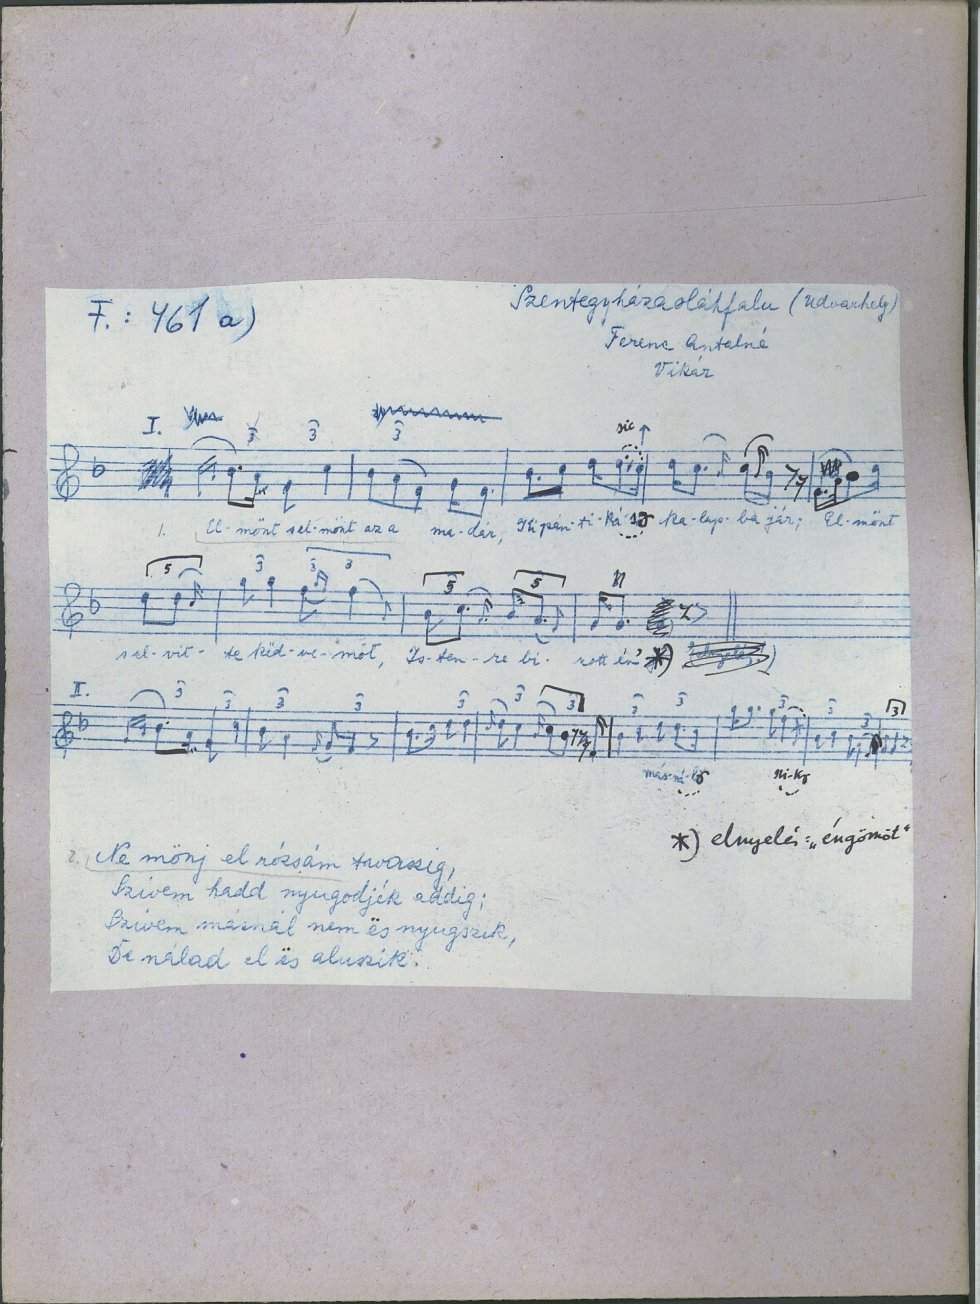 F.: 461 a)
Szentegyházasoláhfalu (Udvarhely)
Ferenc Antalné
Vikár
I.
3 3 3
sic
1. El-mönt sel-mönt az a ma-dár, ka-lap-ba jár; El-mönt
5 3 3 3 5 5
sel-vit-te kéd-ve-möt, Is-ten-re bí-zott én' *)
II.
3 3 3 3 3 3 3 3 3 3 3 3
más-ná-
ni-k
*) elnyelés: „éngömöt"
2. Ne mönj el rózsám tavaszig,
Szívem hadd nyugodjék addig;
Szívem másnál nem ës nyugszik,
De nálad el ës aluszik.